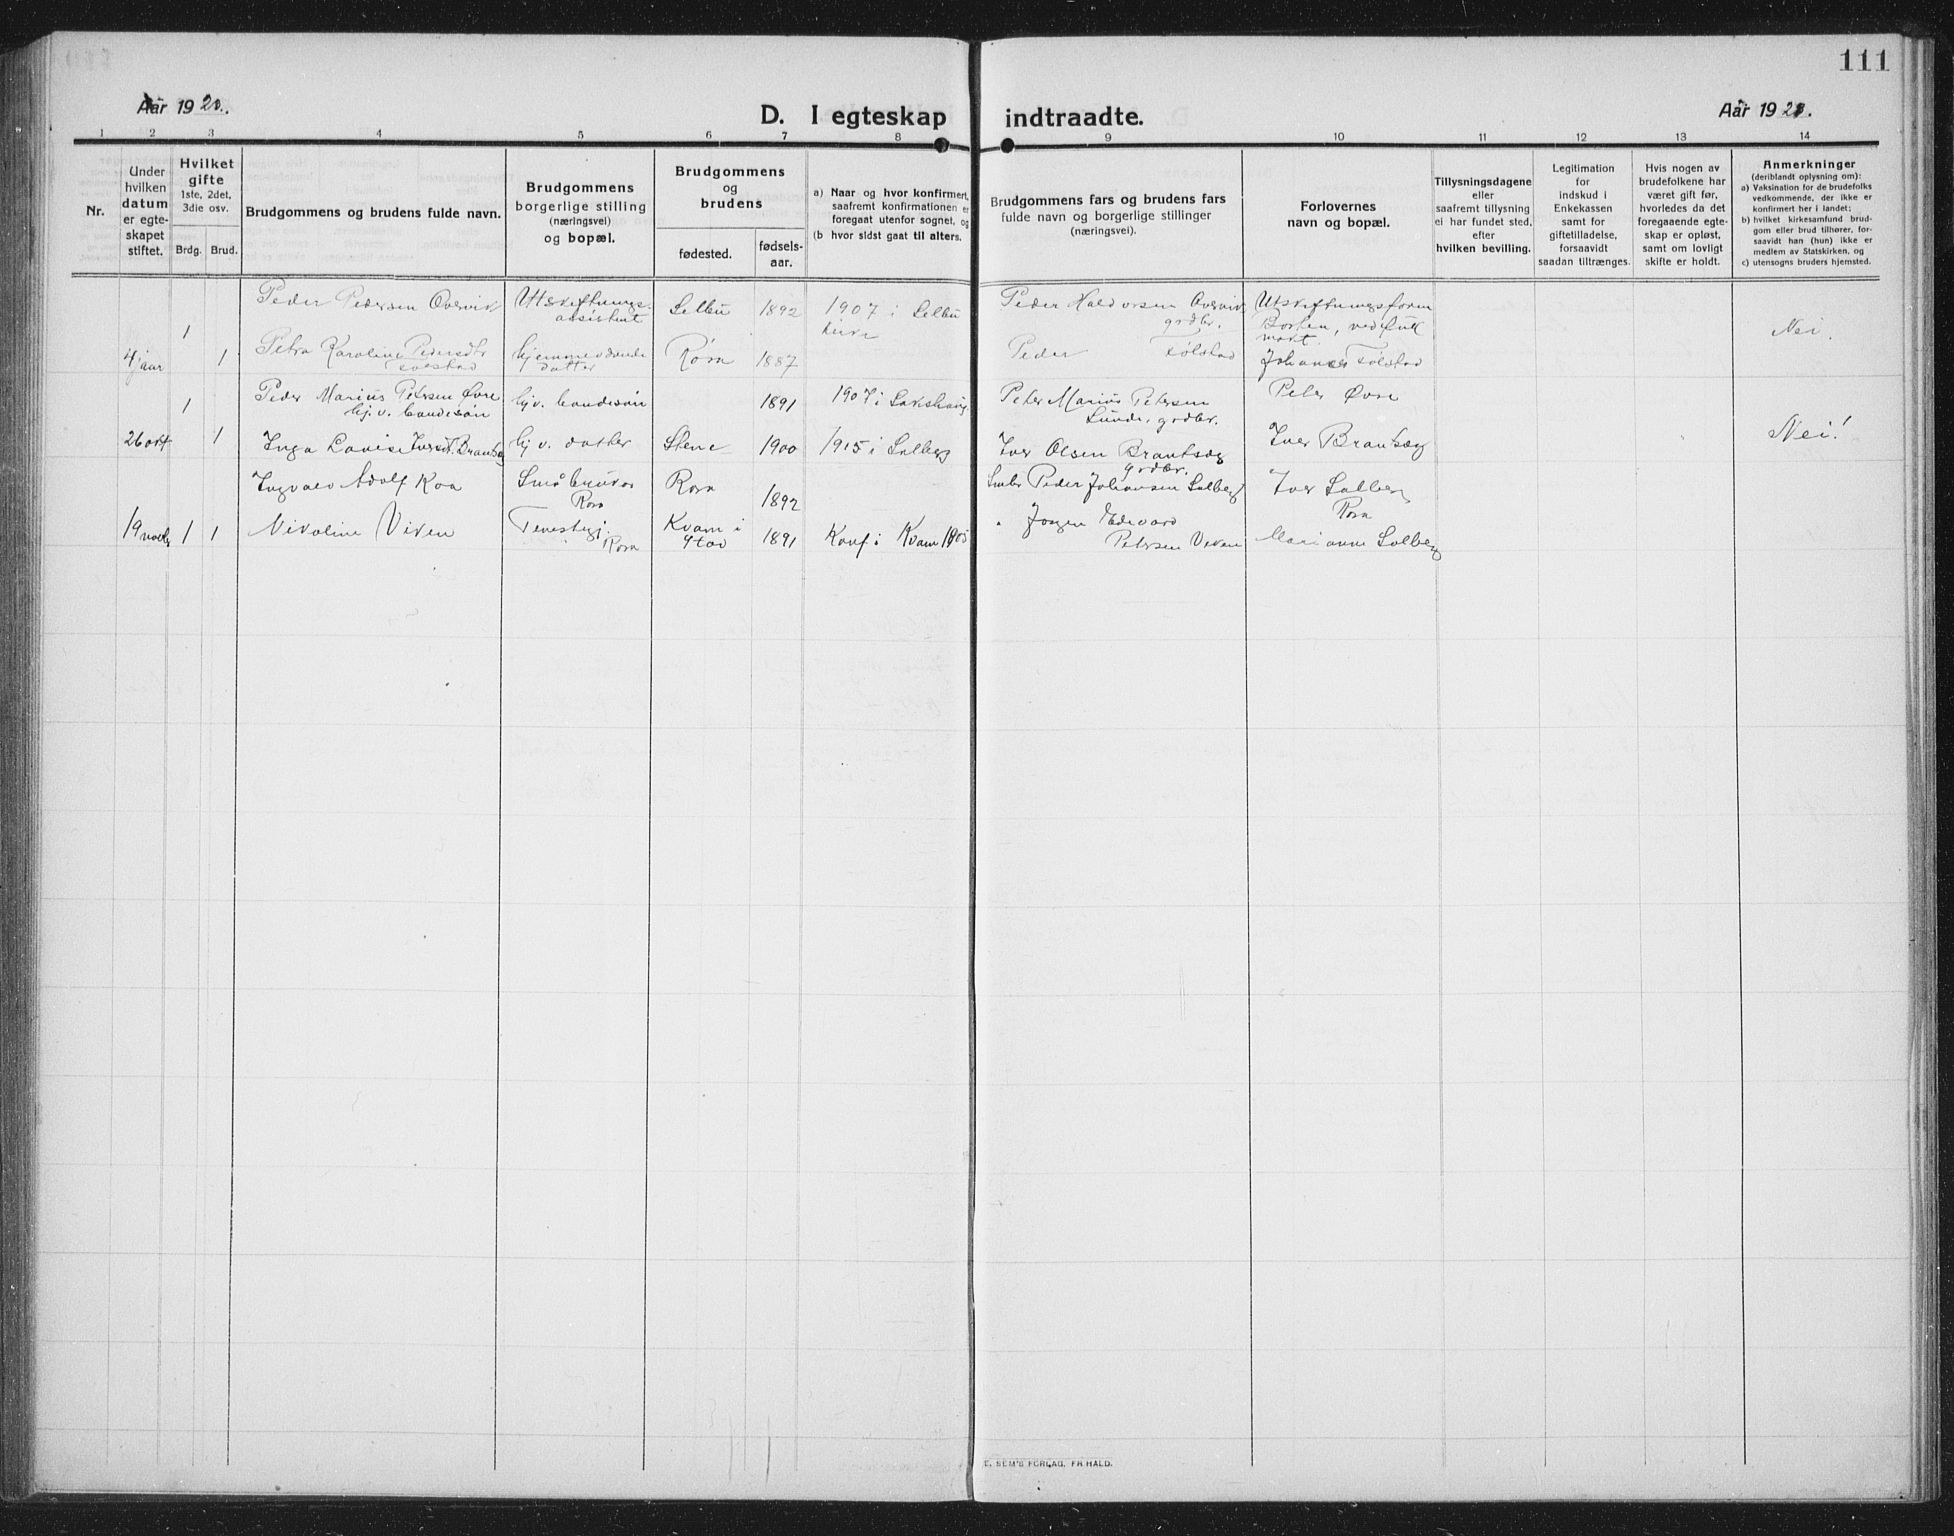 111
Aar 1920.
D. I egteskap indtraadte.
Aar 1920.
1 2 3 4 5 6 7 8 9 10 11 12 13 14
Nr.
Under
hvilken
datum
er egte-
skapet
stiftet.
Hvilket
gifte
1ste, 2det,
3die osv.
Brdg. Brud.
Brudgommens og brudens fulde navn.
Brudgommens
borgerlige stilling
(næringsvei)
og bopæl.
Brudgommens
og
brudens
fødested.
fødsels-
aar.
a) Naar og hvor konfirmert,
saafremt konfirmationen er
foregaat utenfor sognet, og
(b hvor sidst gaat til alters.
Brudgommens fars og brudens fars
fulde navn og borgerlige stillinger
(næringsvei).
Forlovernes
navn og bopæl.
Tillysningsdagene
eller
saafremt tillysning
ei har fundet sted,
efter
hvilken bevilling.
Legitimation
for
indskud i
Enkekassen
samt for
giftetilladelse,
forsaavidt
saadan tiltrænges.
Hvis nogen av
brudefolkene har
været gift før,
hvorledes da det
foregaaende egte-
skap er opløst,
samt om lovligt
skifte er holdt.
Anmerkninger
(deriblandt oplysning om):
a) Vaksination for de brudefolks
vedkommende, der ikke er
konfirmert her i landet;
b) hvilket kirkesamfund brud-
gom eller brud tilhører, for-
saavidt han (hun) ikke er
medlem av Statskirken, og
c) utensogns bruders hjemsted.
1 Peder Pedersen Overvik Utskiftnings-
assistent Selbu 1892 1907 i Selbu
kirke Peder Haldorsen Overvik
grdbr. Utskiftningsform
Nei.
1 Petra Karoline Pedersdtr
Følstad hjemmeværende
datter Røra 1887 Peder Følstad Johannes Følstad
1 Peder Marius Petersen Øvre
hjv. 1891 1907 i Peter Marius Petersen
Sunde, grdbr. Peter Øvre
26 okt 1 Inga Lovise hjv. datter Stene 1900 1915 i Salberg Iver Olsen
grdbr. Iver
Nei!
Ingvald Adolf Koa Småbruker
Røra Røra 1892 Peder Johansen Salberg Iver Salberg
Røra
19 1 1 Nikoline Viken
Røra Kvam i
1891 Konf i Kvam 1905 Edevard
Petersen Viken Marianne Salberg
E. SEM'S FORLAG, FR.HALD.